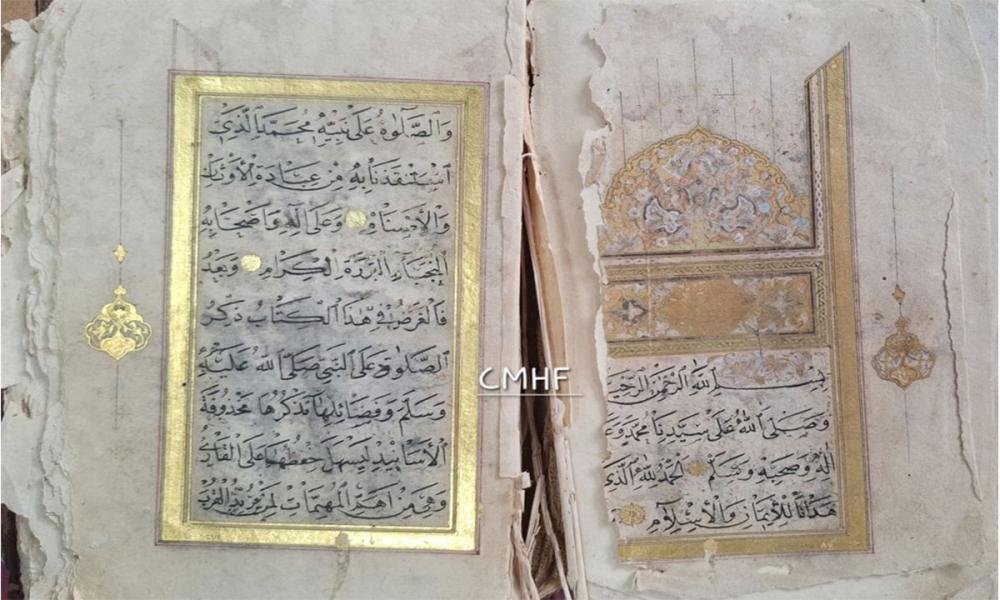 بِسْمِ اللهِ الرَّحْمٰنِ الرَّحِيمِ
وَصَلَّى اللهُ عَلَى سَيِّدِنَا مُحَمَّدٍ
اٰلِهِ وَصَحْبِهِ وَسَلَّمَ اَلْحَمْدُ لِلّٰهِ الَّذِي
هَدَانَا لِلْاِيمَانِ وَالْاِسْلَامِ
وَالصَّلٰوةُ عَلَى نَبِيِّهِ مُحَمَّدٍ الَّذِي
اسْتَنْقَذَنَا بِهِ مِنْ عِبَادَةِ الْاَوْثَانِ
وَالْاَصْنَامِ وَعَلَى اٰلِهِ وَاَصْحَابِهِ
النُّجَبَاءِ الْبَرَرَةِ الْكِرَامِ وَبَعْدُ
فَالْغَرَضُ فِي هٰذَا الْكِتَابِ ذِكْرُ
الصَّلٰوةِ عَلَى النَّبِيِّ صَلَّى اللهُ عَلَيْهِ
وَسَلَّمَ وَفَضَائِلِهَا نَذْكُرُهَا مَحْذُوفَةَ
الْاَسَانِيدِ لِيَسْهُلَ حِفْظُهَا عَلَى الْقَارِئِ
وَهِيَ مِنْ اَهَمِّ الْمُهِمَّاتِ لِمَنْ يُرِيدُ الْقُرْبَ
CMHF